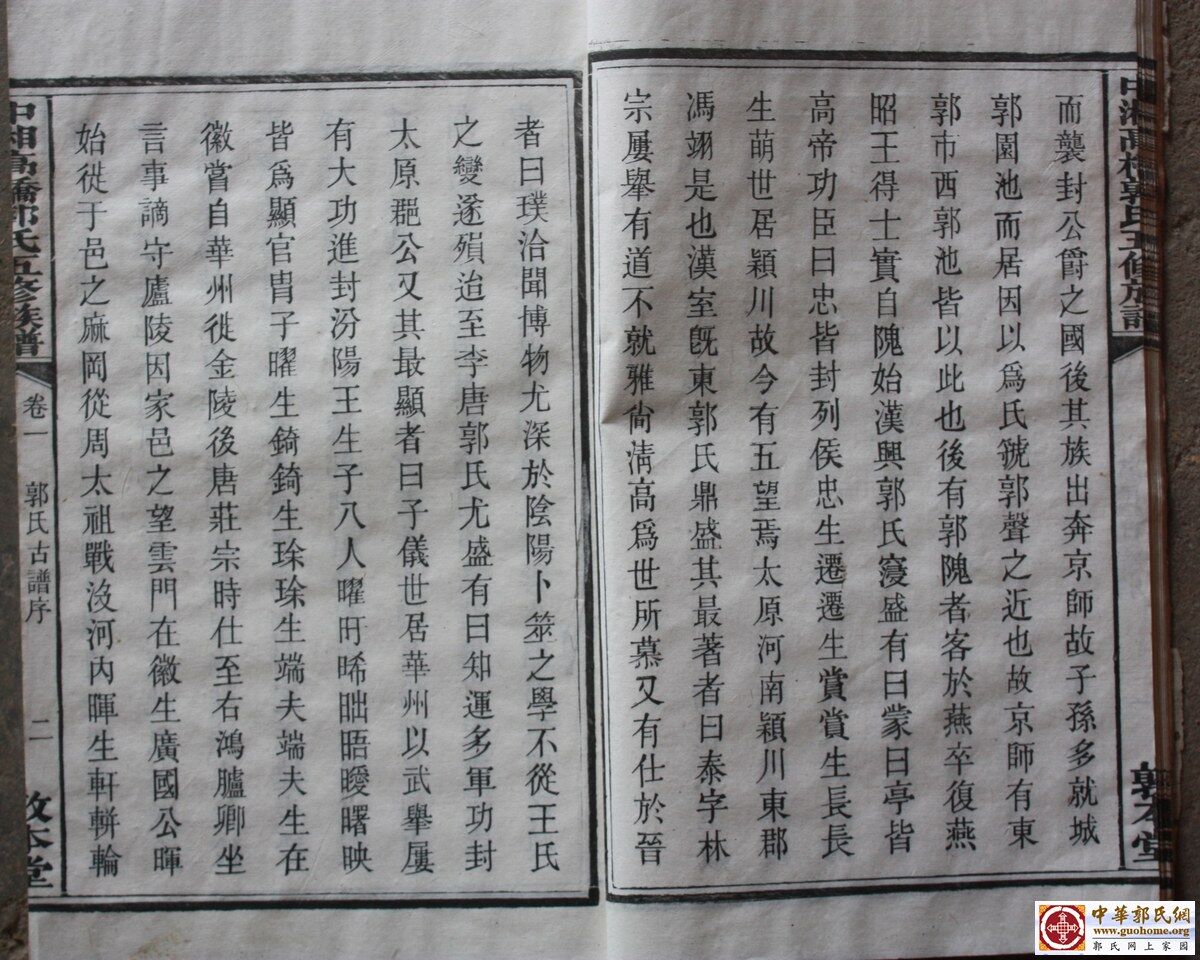 而襲封公爵之國後其族出奔京師故子孫多就城
郭園池而居因以爲氏虢郭聲之近也故京師有東
郭市西郭池皆以此也後有郭隗者客於燕卒復燕
昭王得士實自隗始漢興郭氏寖盛有曰蒙曰亭皆
高帝功臣曰忠皆封列侯忠生遷遷生賞賞生長長
生萌世居潁川故今有五望焉太原河南潁川東郡
馮翊是也漢室旣東郭氏鼎盛其最著者曰泰字林
宗屢舉有道不就雅尙淸高爲世所慕又有仕於晉
者曰璞洽聞博物尤深於陰陽卜筮之學不從王氏
之變遂殞迨至李唐郭氏尤盛有曰知運多軍功封
太原郡公又其最顯者曰子儀世居華州以武舉屢
有大功進封汾陽王生子八人曜旰晞昢晤曖曙映
皆爲顯官胄子曜生錡錡生琭琭生端夫端夫生在
徽嘗自華州徙金陵後唐莊宗時仕至右鴻臚卿坐
言事謫守廬陵因家邑之望雲門在徽生廣國公暉
始徙于邑之麻岡從周太祖戰沒河內暉生軒輧輪
中湘高橋郭氏五修族譜
卷一
郭氏古譜序
二
敦本堂
中華郭氏網
www.guohome.org
郭氏网上家园